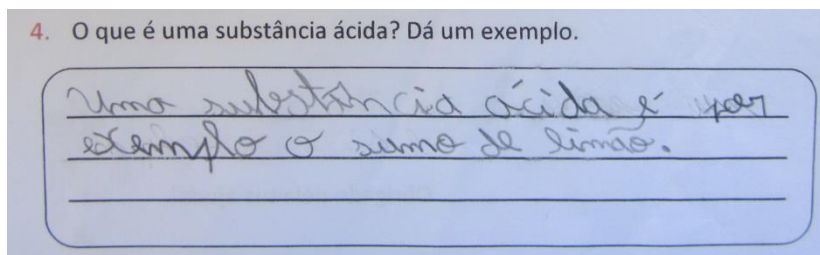 4. O que é uma substância ácida? Dá um exemplo.
Uma substância ácida é por
exemplo o sumo de limão.